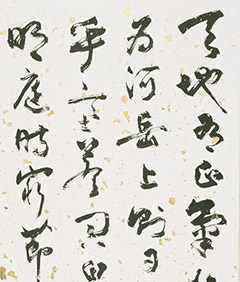 天地有正氣
為河岳上則日
乎塞蒼冥
明庭時窮節